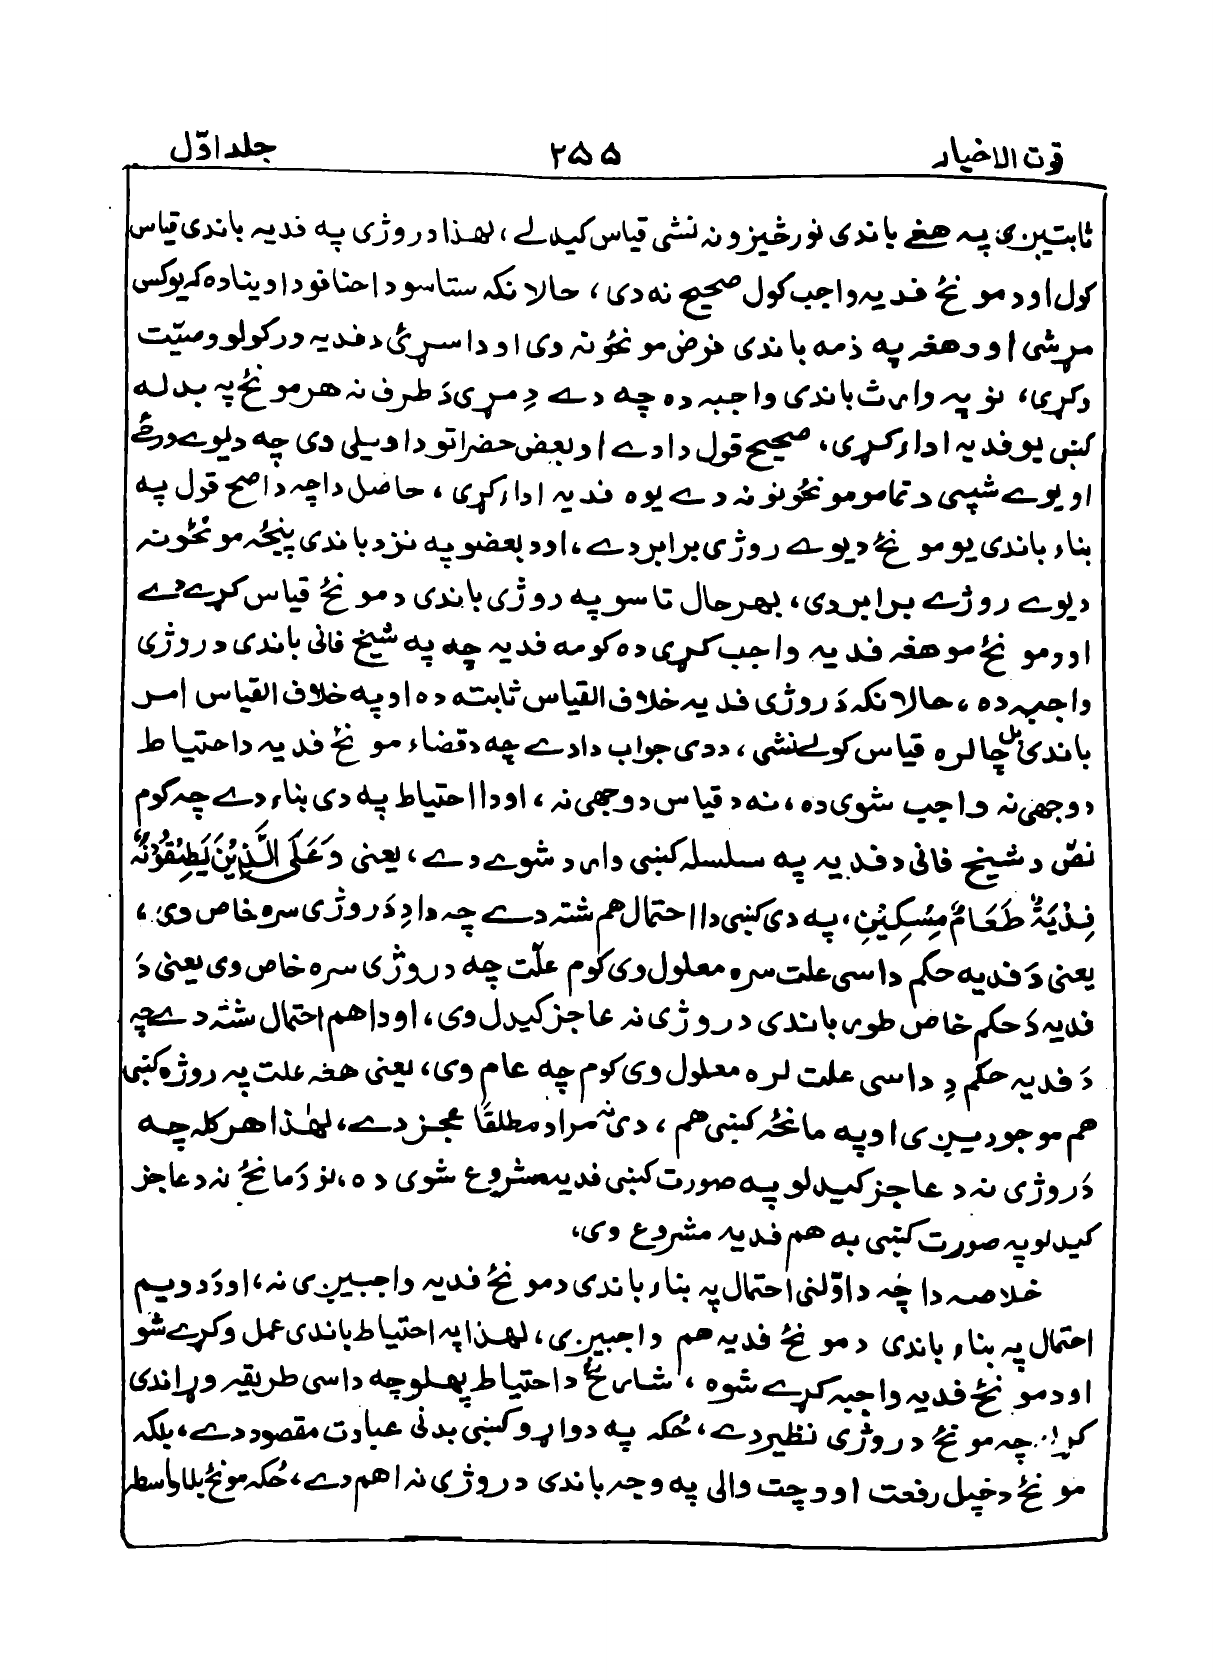 قوت الاخیار ۲۵۵ جلد اوّل
ثابتیږی په هغے باندی نور څیزونه نشی قیاس کیدلے، لهذا د روژی په فدیه باندی قیاس
کول او د مونځ فدیه واجب کول صحیح نه دی، حالانکه ستاسو د احنافو دا وینا ده که یو کس
مړ شی او د هغه په ذمه باندی فرض مونځونه وی او دا سړئ د فدیه درکولو وصیّت
وکړی، نو په وارث باندی واجبه ده چه دے دِ مړی دَ طرف نه هر مونځ په بدله
کښی یو فدیه ادا رکړی، صحیح قول دا دے او بعض حضراتو دا ویلی دی چه د یوے ورځے
او یوے شپی د تمامو مونځونو نه دے یوه فدیه ادا رکړی، حاصل دا چه د اصح قول په
بناء باندی یو مونځ د یوے روژی برابر دے، او د بعضو په نزد باندی پینځه مونځونه
د یوے روژے برابر دی، بهر حال تاسو په روژی باندی د مونځ قیاس کړے دے
او د مونځ مو هغه فدیه واجب کړی ده کومه فدیه چه په شیخ فانی باندی د روژی
واجبه ده، حالانکه دَ روژی فدیه خلاف القیاس ثابته ده او په خلاف القیاس امر
باندی بل چا لره قیاس کولے نشی، ددی جواب دادے چه د قضاء مونځ فدیه د احتیاط
د وجهی نه واجب شوی ده، نه د قیاس د وجهی نه، او دا احتیاط په دی بناء دے چه کوم
نصّ د شیخ فانی د فدیه په سلسله کښی وارد شوے دے، یعنی وَعَلَی الَّذِیْنَ یُطِیْقُوْنَهٗ
فِدْیَةٌ طَعَامُ مِسْکِیْنٍ، په دی کښی دا احتمال هم شته دے چه دا دِ دَ روژی سره خاص وی،
یعنی دَ فدیه حکم داسی علت سره معلول وی کوم علّت چه د روژی سره خاص وی یعنی دَ
فدیه دَ حکم خاص طور باندی د روژی نه عاجز کیدل وی، او دا هم احتمال شته دے چه
دَ فدیه حکم دِ داسی علت لره معلول وی کوم چه عام وی، یعنی هغه علت په روژه کښی
هم موجودیږی او په مانځه کښی هم، دی نه مراد مطلقًا عجز دے، لهٰذا هر کله چه
دَ روژی نه د عاجز کیدلو په صورت کښی فدیه مشروع شوی ده، نو دَ مانځ نه د عاجز
کیدلو په صورت کښی به هم فدیه مشروع وی،
خلاصه دا چُه د اوّلنی احتمال په بناء باندی د مونځ فدیه واجبیږی نه، او دَ دویم
احتمال په بناء باندی د مونځ فدیه هم واجبیږی، لهذا په احتیاط باندی عمل وکړے شو
او د مونځ فدیه واجبه کړے شوه، شارح د احتیاط پهلو چه داسی طریقه وړاندی
کړ چه مونځ د روژی نظیر دے، ځکه په دواړو کښی بدنی عبادت مقصود دے، بلکه
مونځ د خپل رفعت او وچت والی په وجه باندی د روژی نه اهم دے، ځکه مونځ بلا واسطه